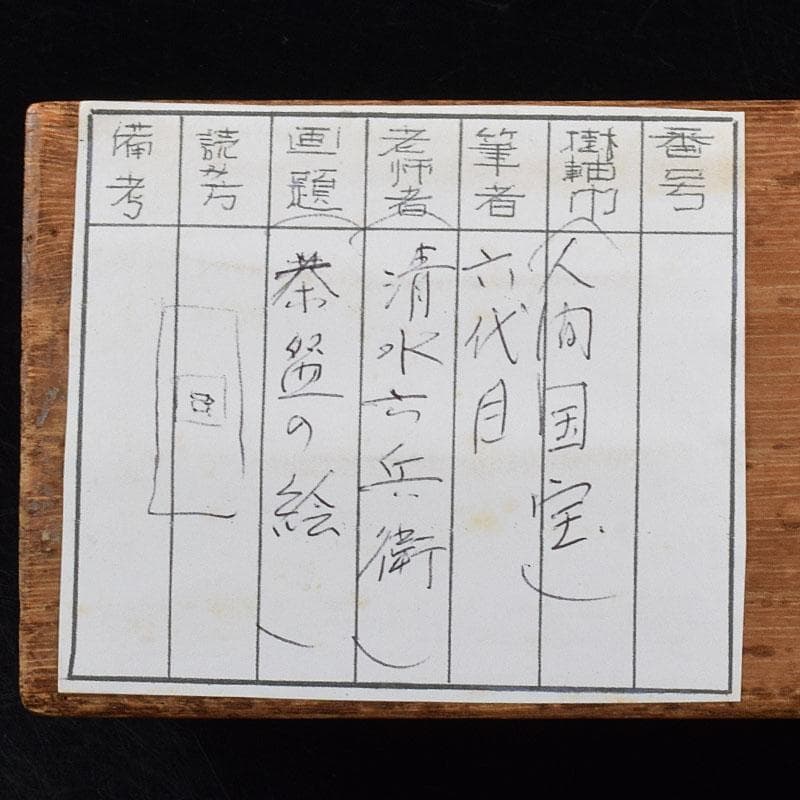 番号
掛軸巾
筆者
老師者
画題
読み方
備考
(人間国宝)
六代目
(清水六兵衛)
(茶盌の絵)